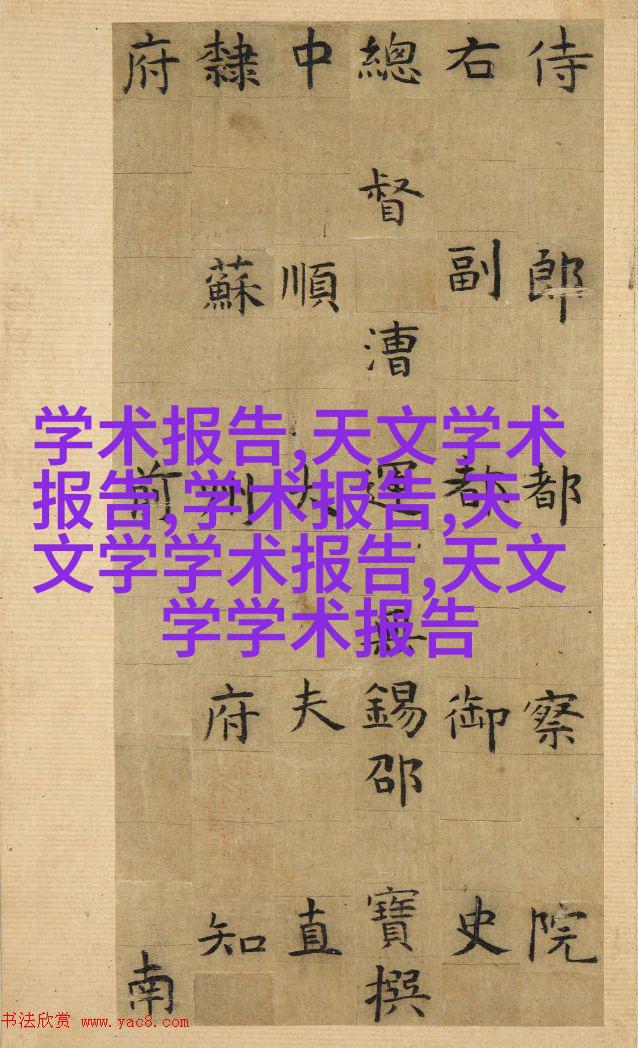 侍郎都察院
右副都御史
總督漕運無錫邵寶撰
中順大夫直
隸蘇州府知
府前南
学术报告,天文学术
报告,学术报告,天
文学学术报告,天文
学学术报告
书法欣赏 www.yac8.com